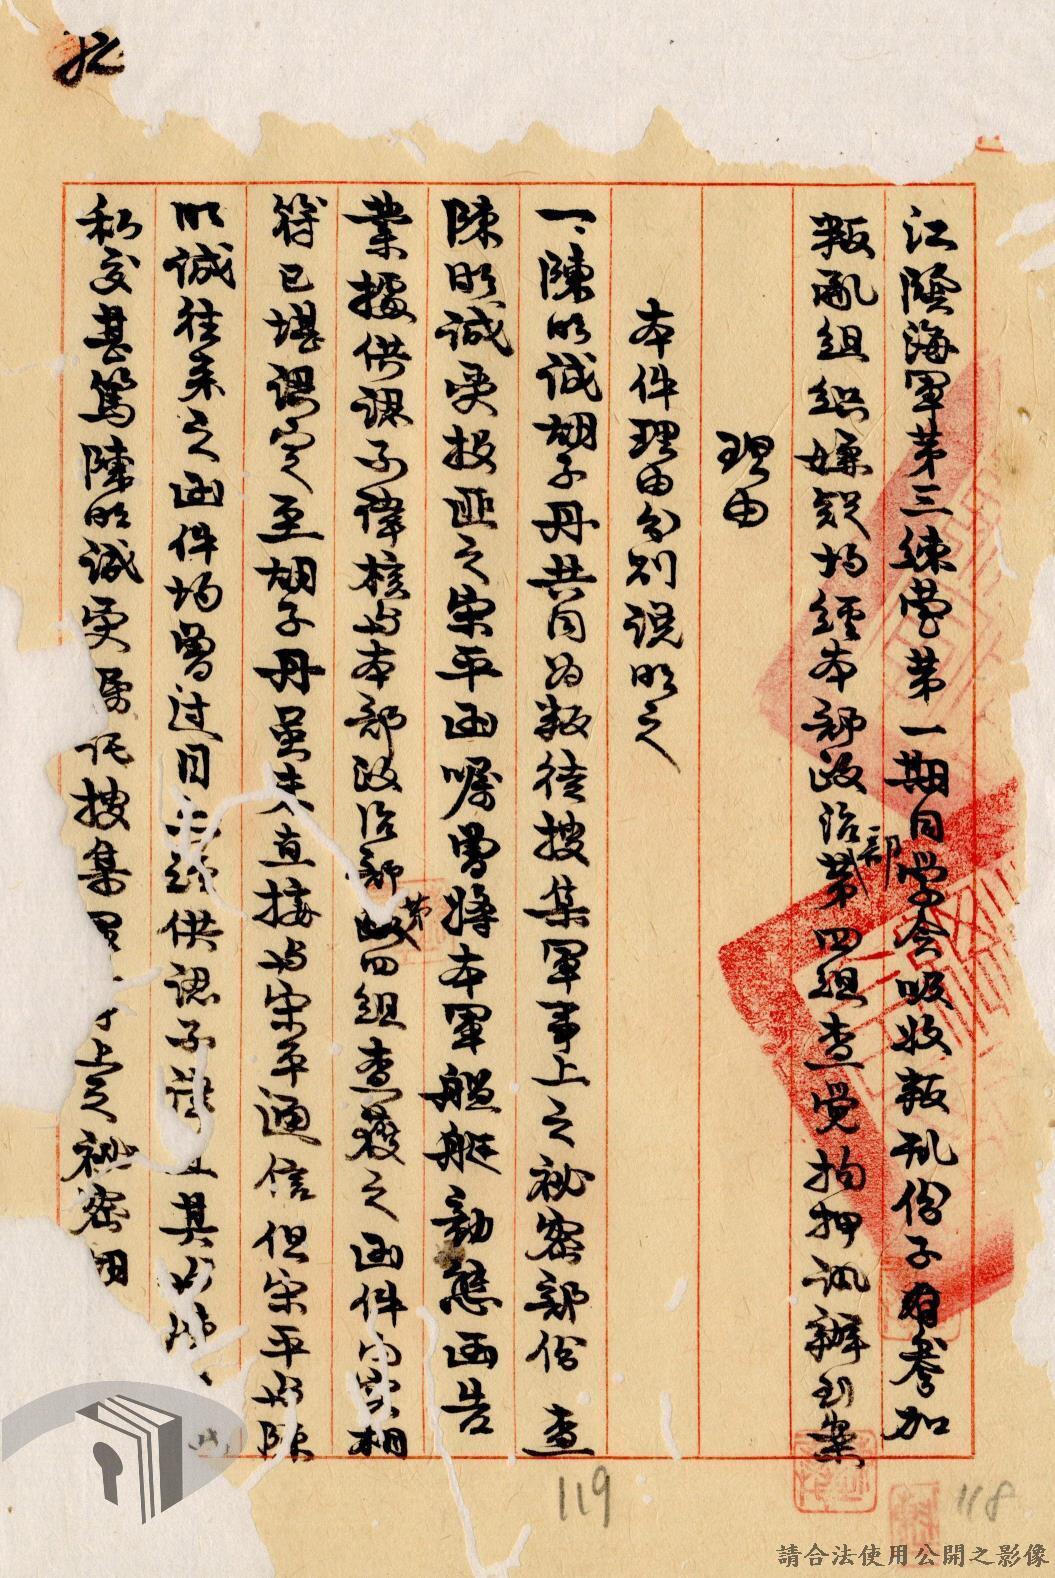 江陰海軍第三練營第一期同學會吸收叛亂份子為參加
叛亂組織嫌疑均經本部政治部第四組查覺拘押訊辦到案
理由
本件理由分別說明之
一、陳明誠胡子丹共同為叛徒搜集軍事上之秘密部份查
陳明誠受投匪之宋平函囑曾將本軍艦艇動態函告
業據供認不諱核與本部政治部第四組查獲之函件內容相
符已堪認定至胡子丹虽未直接与宋平通信但宋平與陳
明誠往來之函件均曾过目 供認不諱且其與陳
私交甚篤陳明誠受 託搜集軍 上之秘密
119
118
請合法使用公開之影像